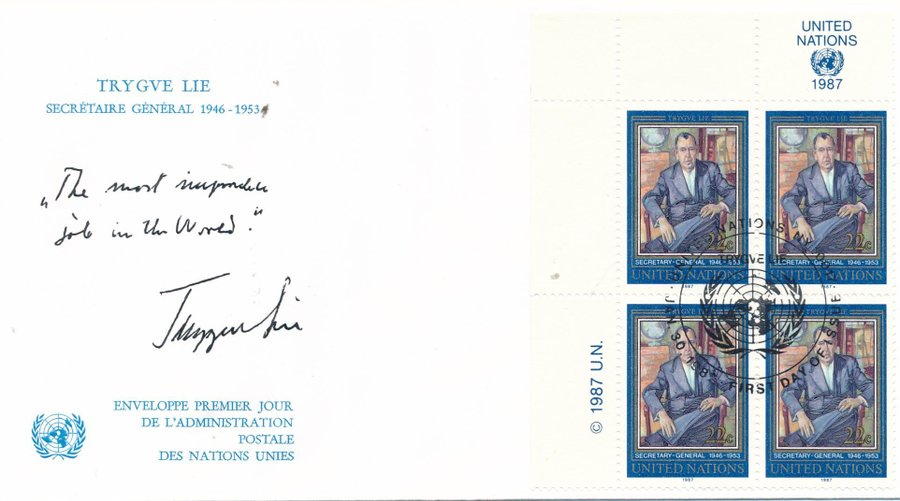 TRYGVE LIE
SECRÉTAIRE GÉNÉRAL 1946-1953
„The most impossible
job in the World."
Trygve Lie
ENVELOPPE PREMIER JOUR
DE L'ADMINISTRATION
POSTALE
DES NATIONS UNIES
UNITED
NATIONS
1987
TRYGVE LIE
22c
SECRETARY-GENERAL 1946-1953
UNITED NATIONS
1987
TRYGVE LIE
22c
SECRETARY-GENERAL 1946-1953
UNITED NATIONS
1987
UNITED NATIONS, N.Y.
TRYGVE LIE
JAN. 30 1987
FIRST DAY OF ISSUE
© 1987 U.N.
22c
SECRETARY-GENERAL 1946-1953
UNITED NATIONS
1987
22c
SECRETARY-GENERAL 1946-1953
UNITED NATIONS
1987